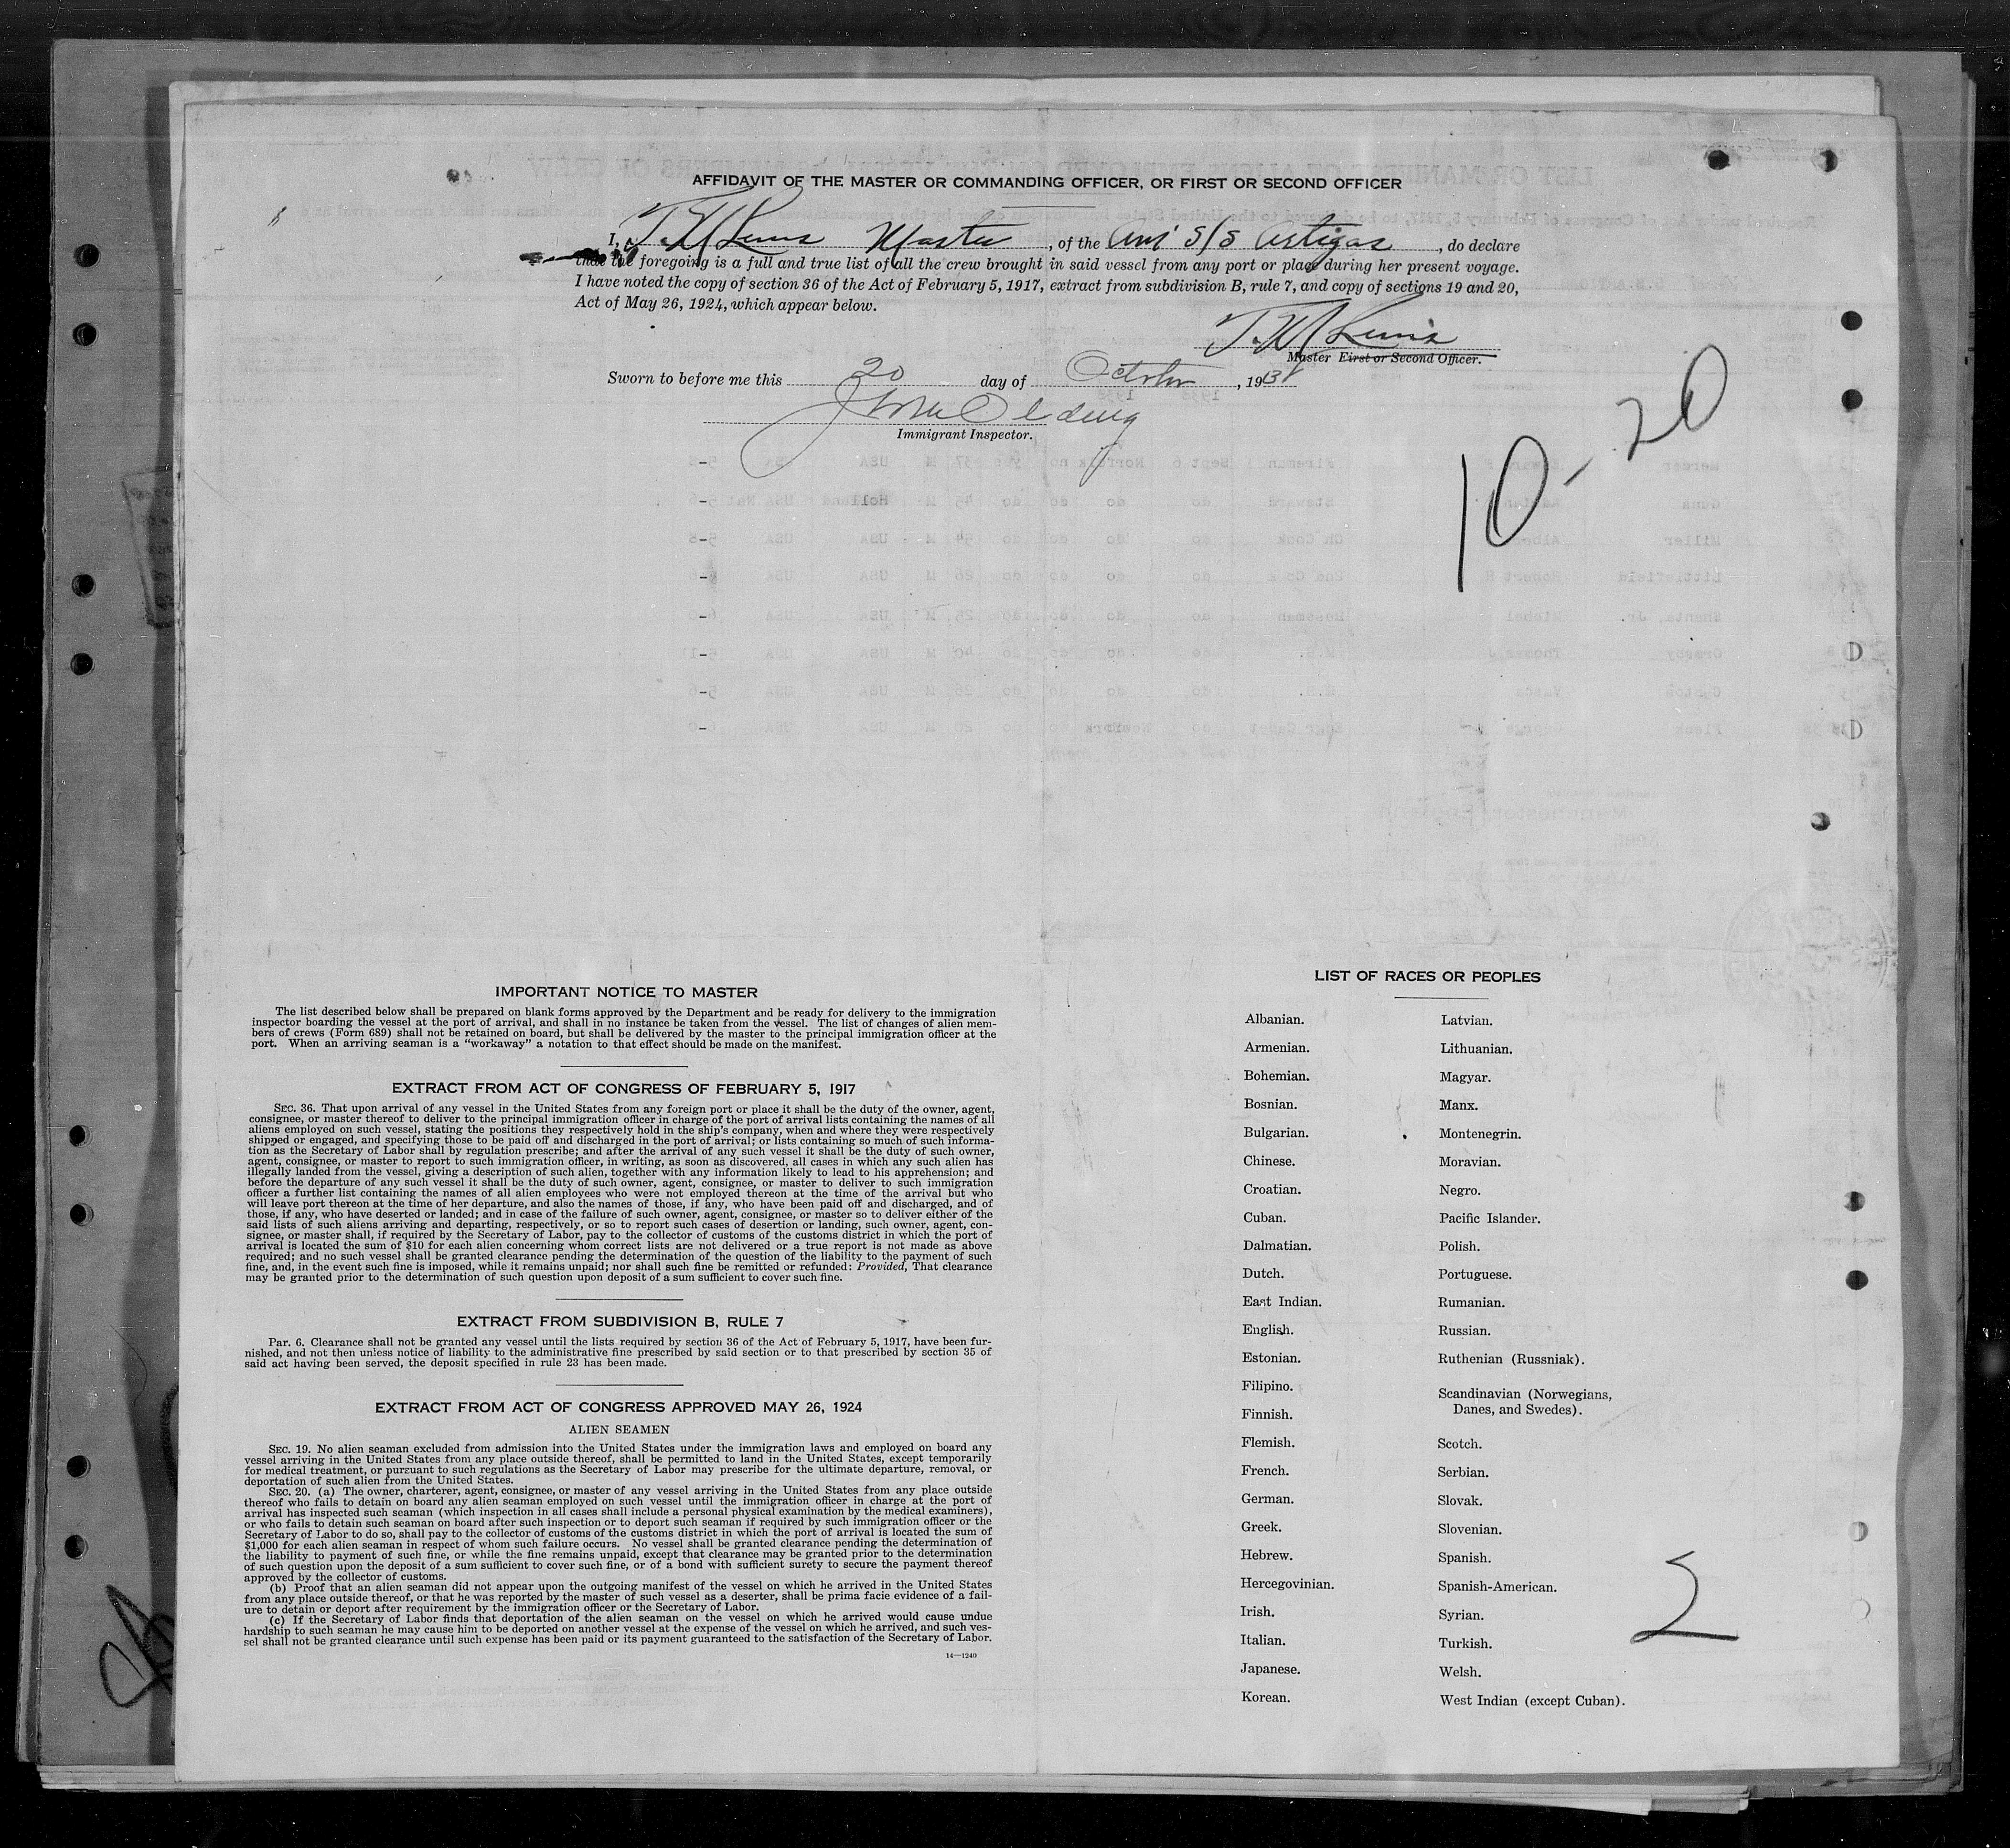 AFFIDAVIT OF THE MASTER OR COMMANDING OFFICER, OR FIRST OR SECOND OFFICER
I, T. W. Lewis Master, of the Am' S/S Artigas, do declare
that the foregoing is a full and true list of all the crew brought in said vessel from any port or place during her present voyage.
I have noted the copy of section 36 of the Act of February 5, 1917, extract from subdivision B, rule 7, and copy of sections 19 and 20,
Act of May 26, 1924, which appear below.
T. W. Lewis
Master First or Second Officer.
Sworn to before me this 20 day of October, 1938
Immigrant Inspector.
10-20
IMPORTANT NOTICE TO MASTER
The list described below shall be prepared on blank forms approved by the Department and be ready for delivery to the immigration
inspector boarding the vessel at the port of arrival, and shall in no instance be taken from the vessel. The list of changes of alien mem-
bers of crews (Form 689) shall not be retained on board, but shall be delivered by the master to the principal immigration officer at the
port. When an arriving seaman is a "workaway" a notation to that effect should be made on the manifest.
EXTRACT FROM ACT OF CONGRESS OF FEBRUARY 5, 1917
SEC. 36. That upon arrival of any vessel in the United States from any foreign port or place it shall be the duty of the owner, agent,
consignee, or master thereof to deliver to the principal immigration officer in charge of the port of arrival lists containing the names of all
aliens employed on such vessel, stating the positions they respectively hold in the ship's company, when and where they were respectively
shipped or engaged, and specifying those to be paid off and discharged in the port of arrival; or lists containing so much of such informa-
tion as the Secretary of Labor shall by regulation prescribe; and after the arrival of any such vessel it shall be the duty of such owner,
agent, consignee, or master to report to such immigration officer, in writing, as soon as discovered, all cases in which any such alien has
illegally landed from the vessel, giving a description of such alien, together with any information likely to lead to his apprehension; and
before the departure of any such vessel it shall be the duty of such owner, agent, consignee, or master to deliver to such immigration
officer a further list containing the names of all alien employees who were not employed thereon at the time of the arrival but who
will leave port thereon at the time of her departure, and also the names of those, if any, who have been paid off and discharged, and of
those, if any, who have deserted or landed; and in case of the failure of such owner, agent, consignee, or master so to deliver either of the
said lists of such aliens arriving and departing, respectively, or so to report such cases of desertion or landing, such owner, agent, con-
signee, or master shall, if required by the Secretary of Labor, pay to the collector of customs of the customs district in which the port of
arrival is located the sum of $10 for each alien concerning whom correct lists are not delivered or a true report is not made as above
required; and no such vessel shall be granted clearance pending the determination of the question of the liability to the payment of such
fine, and, in the event such fine is imposed, while it remains unpaid; nor shall such fine be remitted or refunded: Provided, That clearance
may be granted prior to the determination of such question upon deposit of a sum sufficient to cover such fine.
EXTRACT FROM SUBDIVISION B, RULE 7
Par. 6. Clearance shall not be granted any vessel until the lists required by section 36 of the Act of February 5, 1917, have been fur-
nished, and not then unless notice of liability to the administrative fine prescribed by said section or to that prescribed by section 35 of
said act having been served, the deposit specified in rule 23 has been made.
EXTRACT FROM ACT OF CONGRESS APPROVED MAY 26, 1924
ALIEN SEAMEN
SEC. 19. No alien seaman excluded from admission into the United States under the immigration laws and employed on board any
vessel arriving in the United States from any place outside thereof, shall be permitted to land in the United States, except temporarily
for medical treatment, or pursuant to such regulations as the Secretary of Labor may prescribe for the ultimate departure, removal, or
deportation of such alien from the United States.
SEC. 20. (a) The owner, charterer, agent, consignee, or master of any vessel arriving in the United States from any place outside
thereof who fails to detain on board any alien seaman employed on such vessel until the immigration officer in charge at the port of
arrival has inspected such seaman (which inspection in all cases shall include a personal physical examination by the medical examiners),
or who fails to detain such seaman on board after such inspection or to deport such seaman if required by such immigration officer or the
Secretary of Labor to do so, shall pay to the collector of customs of the customs district in which the port of arrival is located the sum of
$1,000 for each alien seaman in respect of whom such failure occurs. No vessel shall be granted clearance pending the determination of
the liability to payment of such fine, or while the fine remains unpaid, except that clearance may be granted prior to the determination
of such question upon the deposit of a sum sufficient to cover such fine, or of a bond with sufficient surety to secure the payment thereof
approved by the collector of customs.
(b) Proof that an alien seaman did not appear upon the outgoing manifest of the vessel on which he arrived in the United States
from any place outside thereof, or that he was reported by the master of such vessel as a deserter, shall be prima facie evidence of a fail-
ure to detain or deport after requirement by the immigration officer or the Secretary of Labor.
(c) If the Secretary of Labor finds that deportation of the alien seaman on the vessel on which he arrived would cause undue
hardship to such seaman he may cause him to be deported on another vessel at the expense of the vessel on which he arrived, and such ves-
sel shall not be granted clearance until such expense has been paid or its payment guaranteed to the satisfaction of the Secretary of Labor.
14—1240
LIST OF RACES OR PEOPLES
Albanian.
Armenian.
Bohemian.
Bosnian.
Bulgarian.
Chinese.
Croatian.
Cuban.
Dalmatian.
Dutch.
East Indian.
English.
Estonian.
Filipino.
Finnish.
Flemish.
French.
German.
Greek.
Hebrew.
Hercegovinian.
Irish.
Italian.
Japanese.
Korean.
Latvian.
Lithuanian.
Magyar.
Manx.
Montenegrin.
Moravian.
Negro.
Pacific Islander.
Polish.
Portuguese.
Rumanian.
Russian.
Ruthenian (Russniak).
Scandinavian (Norwegians,
Danes, and Swedes).
Scotch.
Serbian.
Slovak.
Slovenian.
Spanish.
Spanish-American.
Syrian.
Turkish.
Welsh.
West Indian (except Cuban).
2